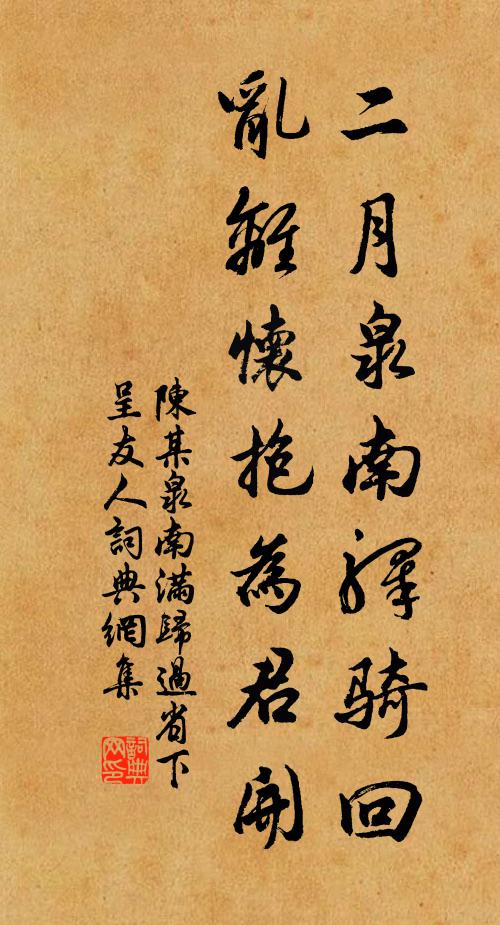 二月泉南驛騎回
亂離懷抱為君開
陳某泉南滿歸過省下
呈友人詞典網集
詞典
网印